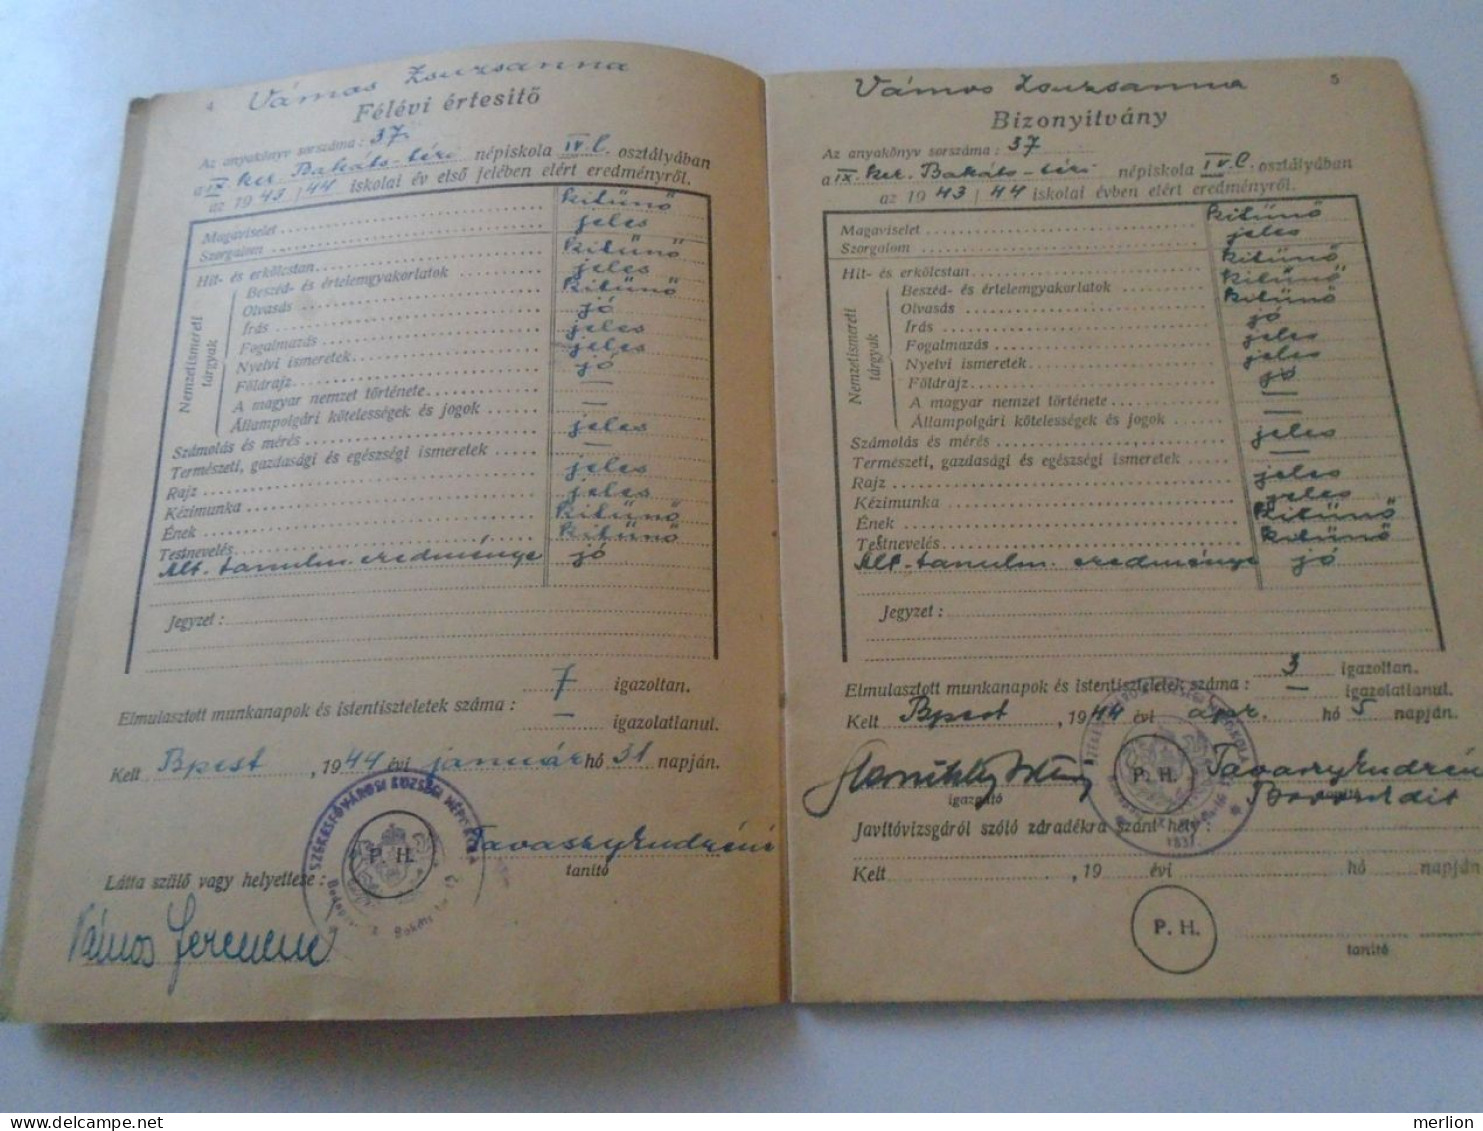 4 Vámos Zsuzsanna
Félévi értesítő
Az anyakönyv sorszáma : 37.
a IX. ker. Bakáts-téri népiskola IV. C. osztályában
az 1943/44 iskolai év első felében elért eredményről.
Magaviselet kitünő
Szorgalom jeles
Hit- és erkölcstan kitünő
Nemzetismereti tárgyak
Beszéd- és értelemgyakorlatok jeles
Olvasás kitünő
Írás jó
Fogalmazás jeles
Nyelvi ismeretek jeles
Földrajz jó
A magyar nemzet története —
Állampolgári kötelességek és jogok —
Számolás és mérés jeles
Természeti, gazdasági és egészségi ismeretek —
Rajz jeles
Kézimunka jeles
Ének kitünő
Testnevelés kitünő
Ált. tanulm. eredménye jó
Jegyzet :
Elmulasztott munkanapok és istentiszteletek száma : 7 igazoltan.
— igazolatlanul.
Kelt Bpest, 1944 évi január hó 31 napján.
SZÉKESFŐVÁROSI KÖZSÉGI NÉPISKOLA
P. H.
Tavaszy Endréné
tanító
Látta szülő vagy helyettese :
Vámos Ferencné
Vámos Zsuzsanna 5
Bizonyítvány
Az anyakönyv sorszáma : 37
a IX. ker. Bakáts-téri népiskola IV. C. osztályában
az 1943/44 iskolai évben elért eredményről.
Magaviselet kitünő
Szorgalom jeles
Hit- és erkölcstan kitünő
Nemzetismereti tárgyak
Beszéd- és értelemgyakorlatok kitünő
Olvasás kitünő
Írás jó
Fogalmazás jeles
Nyelvi ismeretek jeles
Földrajz jó
A magyar nemzet története —
Állampolgári kötelességek és jogok —
Számolás és mérés jeles
Természeti, gazdasági és egészségi ismeretek —
Rajz jeles
Kézimunka jeles
Ének kitünő
Testnevelés kitünő
Ált. tanulm. eredménye jó
Jegyzet :
Elmulasztott munkanapok és istentiszteletek száma : 3 igazoltan.
— igazolatlanul.
Kelt Bpest, 1944 évi ápr. hó 5 napján.
igazgató
P. H.
Tavaszy Endréné
tanító
Javítóvizsgáról szóló záradékra szánt hely :
Kelt , 19 évi hó napján
P. H.
tanító
merlion